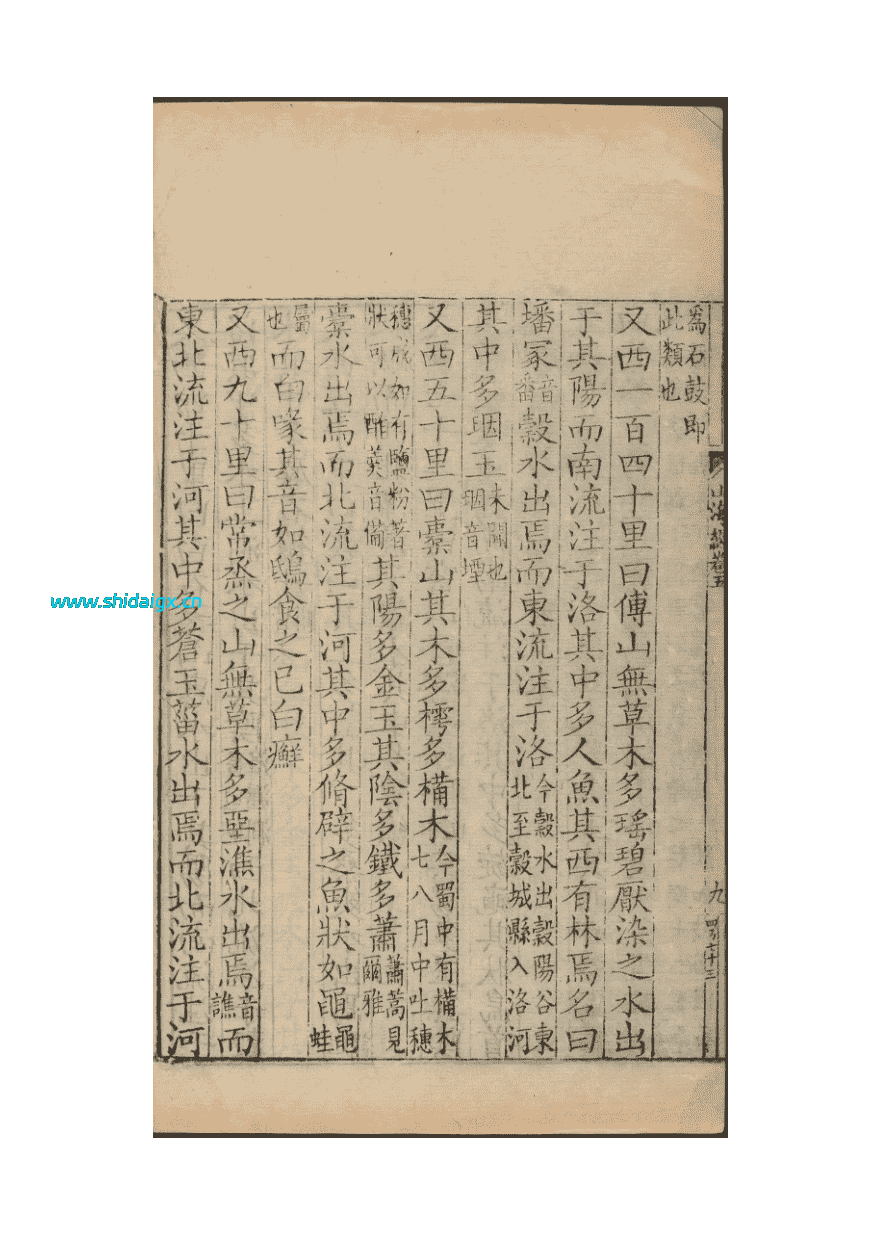 山海經卷五
九
爲石鼓即此類也
又西一百四十里曰傅山無草木多瑤碧厭染之水出
于其陽而南流注于洛其中多人魚其西有林焉名曰
墦冢音番穀水出焉而東流注于洛今穀水出穀陽谷東北至穀城縣入洛河
其中多珚玉未聞也珚音堙
又西五十里曰橐山其木多樗多㰆木今蜀中有㰆木七八月中吐穗
穗成如有鹽粉著狀可以酢羹音備其陽多金玉其隂多鐵多蕭蕭蒿見爾雅
橐水出焉而北流注于河其中多脩辟之魚狀如黽黽蛙
屬也而白喙其音如鴟食之已白癬
又西九十里曰常烝之山無草木多堊潐水出焉音譙而
東北流注于河其中多蒼玉菑水出焉而北流注于河
www.shidaigx.cn